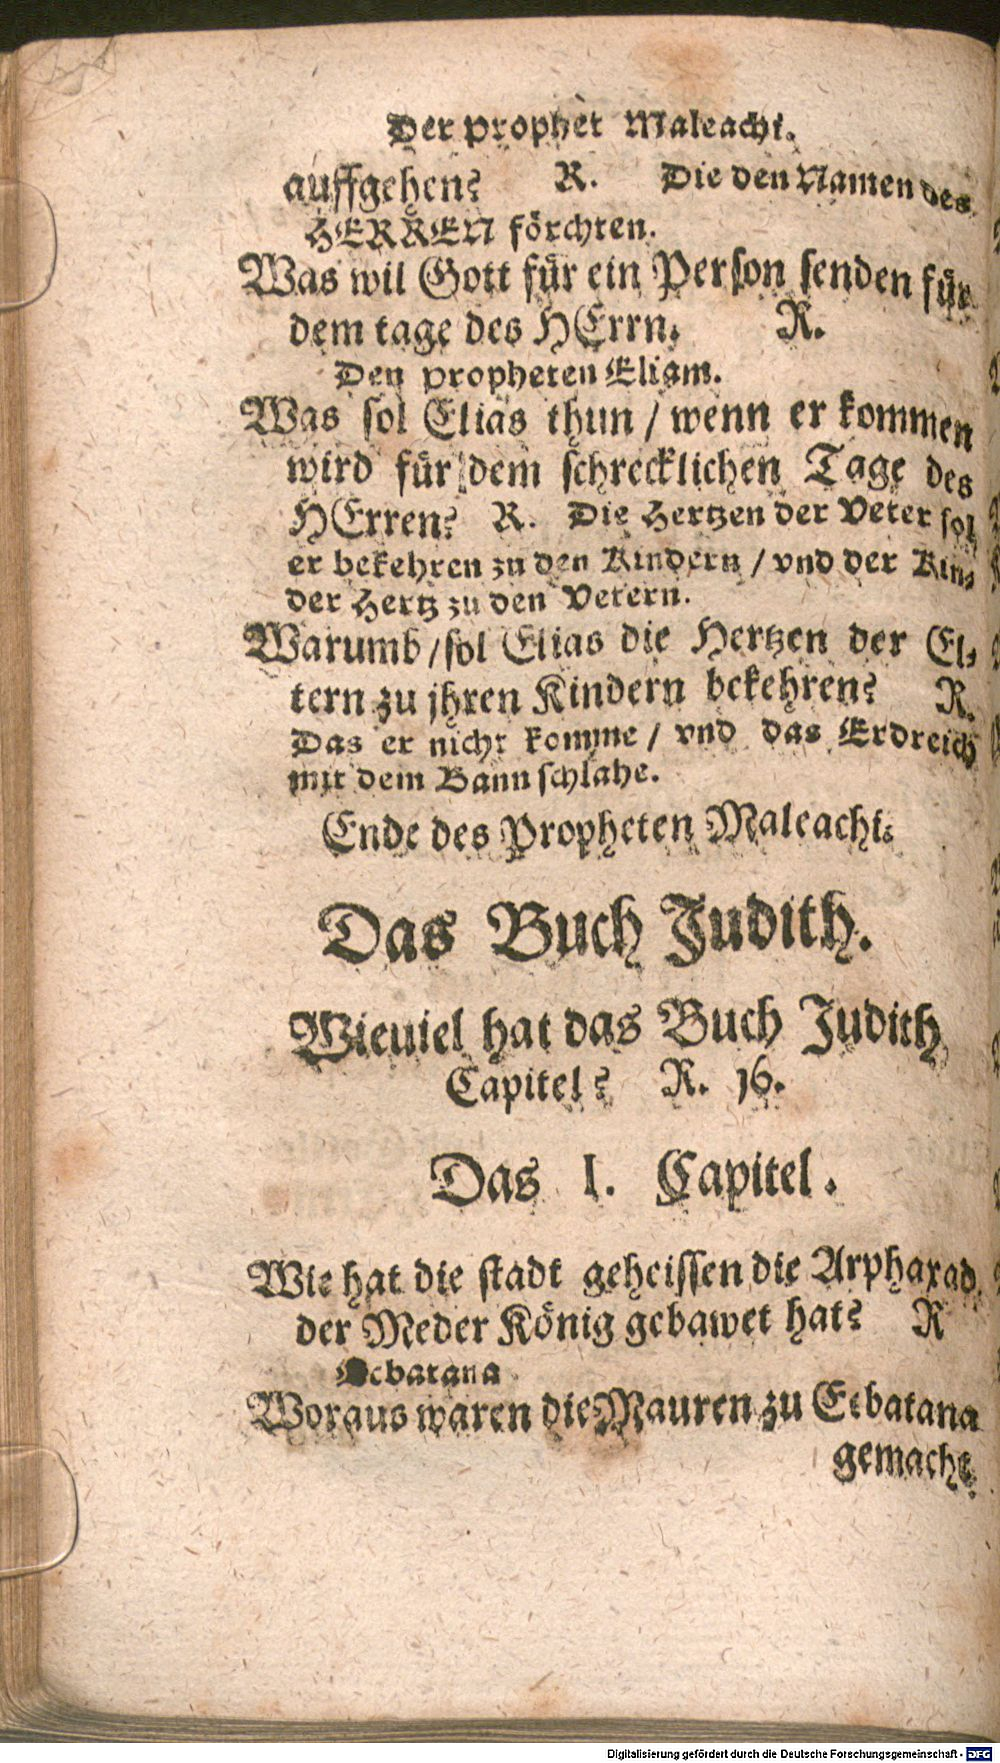 Der Prophet Maleachi.
auffgehen? R. Die den Namen des
HERREN förchten.
Was wil Gott für ein Person senden für
dem tage des HErrn. R.
Den propheten Eliam.
Was sol Elias thun / wenn er kommen
wird für dem schrecklichen Tage des
HErren? R. Die Hertzen der Veter sol
er bekehren zu den Kindern / vnd der Kin-
der Hertz zu den Vetern.
Warumb / sol Elias die Hertzen der El-
tern zu jhren Kindern bekehren? R.
Das er nicht komme / vnd das Erdreich
mit dem Bann schlahe.
Ende des Propheten Maleachi.
Das Buch Judith.
Wieuiel hat das Buch Judith
Capitel? R. 16.
Das I. Capitel.
Wie hat die stadt geheissen die Arphaxad
der Meder König gebawet hat? R
Ecbatana
Woraus waren die Mauren zu Ecbatana
gemacht
Digitalisierung gefördert durch die Deutsche Forschungsgemeinschaft - DFG